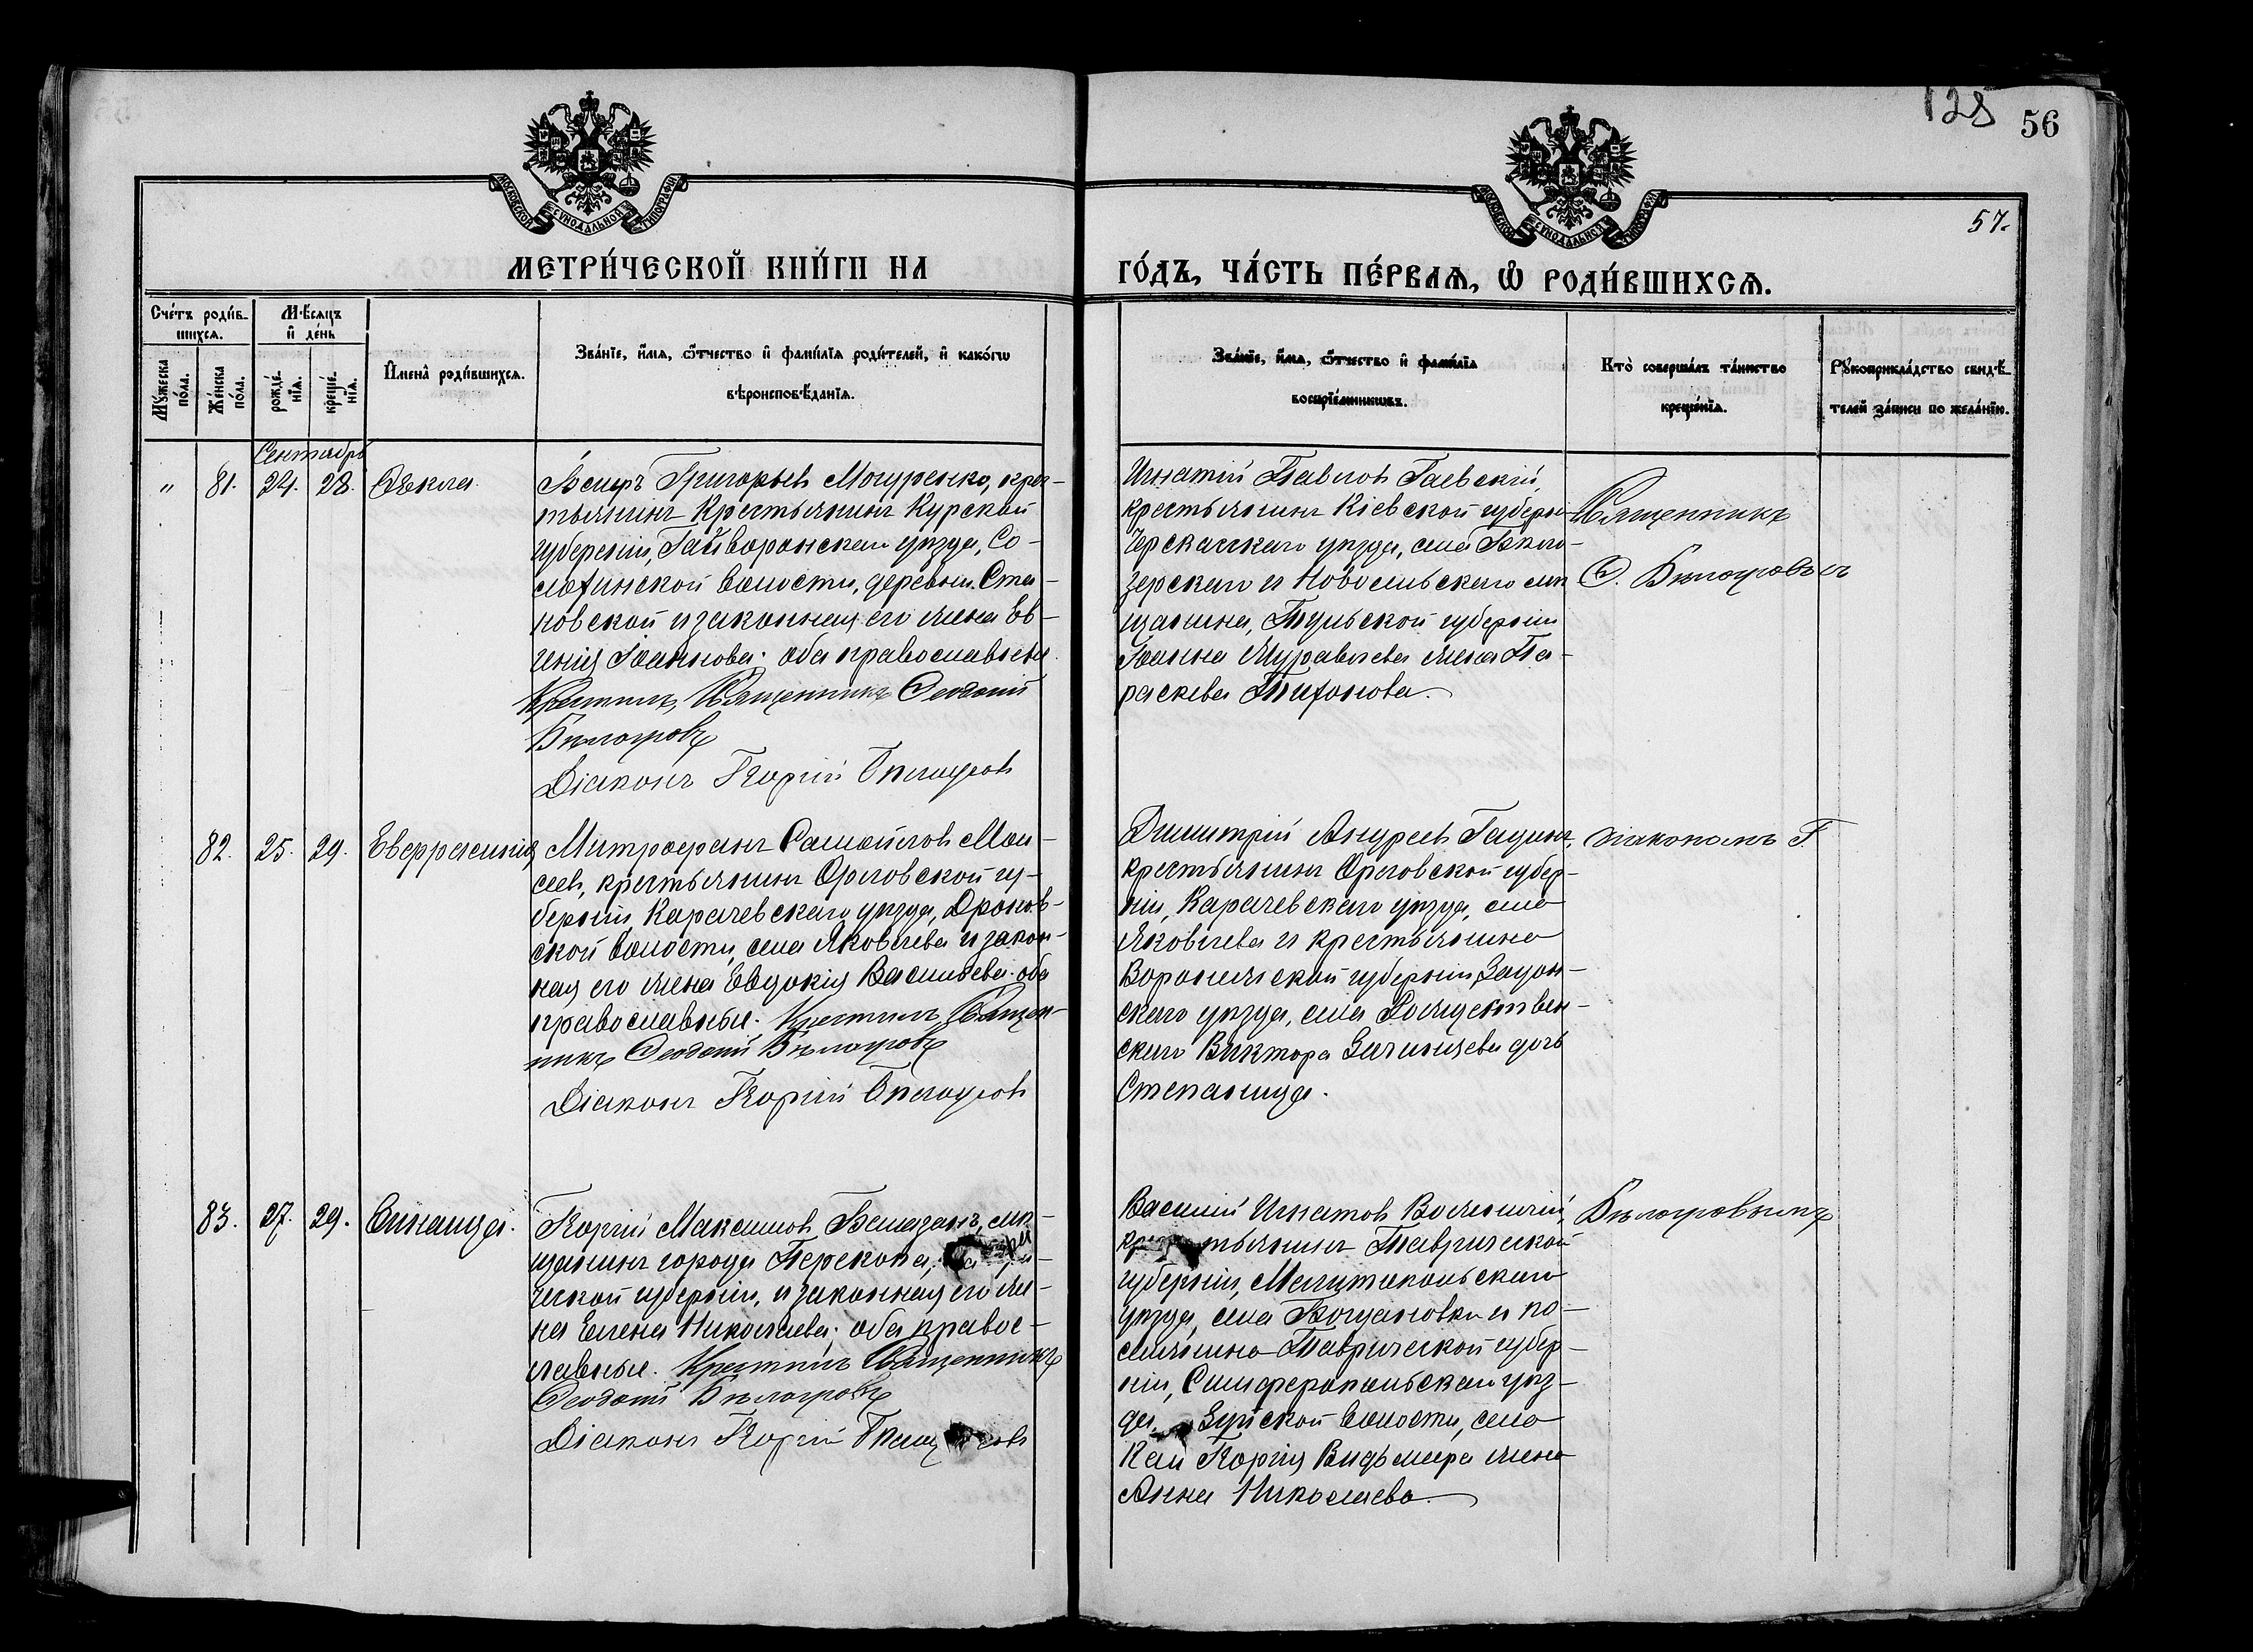 128
56
57.
МОСКОВСКОЙ СѴНОДАЛЬНОЙ ТИПОГРАФІИ
МОСКОВСКОЙ СѴНОДАЛЬНОЙ ТИПОГРАФІИ
МЕТРИ́ЧЕСКОЙ КНИ́ГИ НА
ГО́ДЪ, ЧА́СТЬ ПЕ́РВАѦ, Ѽ РОДИ́ВШИХСѦ.
Сче́тъ роди́в-
шихсѧ.
Мꙋ́жеска по́ла.
Же́нска по́ла.
Мѣ́сѧцъ
и҆ де́нь
рожде́-
нїѧ.
креще́-
нїѧ.
И҆мена̀ роди́вшихсѧ.
Зва́нїе, и҆́мѧ, ѻ҆́тчество и҆ фами́лїѧ роди́телей, и҆ како́гѡ
вѣроисповѣ́данїѧ.
Зва́нїе, и҆́мѧ, ѻ҆́тчество и҆ фами́лїѧ
воспрїе́мникѡвъ.
Кто̀ соверша́лъ та́инство
креще́нїѧ.
Рꙋкоприкла́дство свидѣ́-
телей за́писи по жела́нїю.
Сентябрь
" 81. 24. 28. Ѳекла.
Григорьевъ Могуренко, крес-
тьянинъ Крестьянинъ Курской
губерніи, Гайворонскаго уѣзда, Со-
лохинской волости, деревни Ста-
новской и законная его жена Ев-
генія Іоаннова. оба православные.
Крестилъ Священникъ Ѳеодотій
Бѣлогровъ
Діаконъ Георгій
Игнатій Павловъ Гаевскій,
крестьянинъ Кіевской губерн.
Черкасскаго уѣзда, села Бѣло-
зерскаго и Новосильскаго мѣ
щанина, Тульской губерніи
Іоанна Муравлева жена Па-
раскева Тихонова.
Священникъ
Ѳ.
82. 25. 29. Евфрасинія
Митрофанъ Самойловъ Мои-
сеевъ, крестьянинъ Орловской гу-
берніи, Карачевскаго уѣзда, Дронов-
ской волости, села Яковлева и закон-
ная его жена Евдокія Васильева. оба
православные. Крестилъ Священ-
никъ Ѳеодотій Бѣлогровъ
Діаконъ Георгій
Димитрій Андреевъ
крестьянинъ Орловской губер-
ніи, Карачевскаго уѣзда, села
Яковлева и крестьянина
Воронежской губерніи, Задон-
скаго уѣзда, села Рождествен-
скаго Виктора дочь
Степанида.
діакономъ Г.
83. 27. 29. Зинаида.
Георгій Максимовъ мѣ-
щанинъ города Перекопа,
ческой губерніи, и законная его же-
на Елена Николаева; оба правос-
лавные. Крестилъ Священникъ
Ѳеодотій Бѣлогровъ
Діаконъ Георгій
Василій Игнатовъ
крестьянинъ Таврической
губерніи, Мелитопольскаго
уѣзда, села Богдановки и по-
селянина Таврической губер-
ніи, Симферопольскаго уѣз-
да, Зуйской волости, села
Георгія Видьмера жена
Анна Николаева.
Бѣлогровымъ